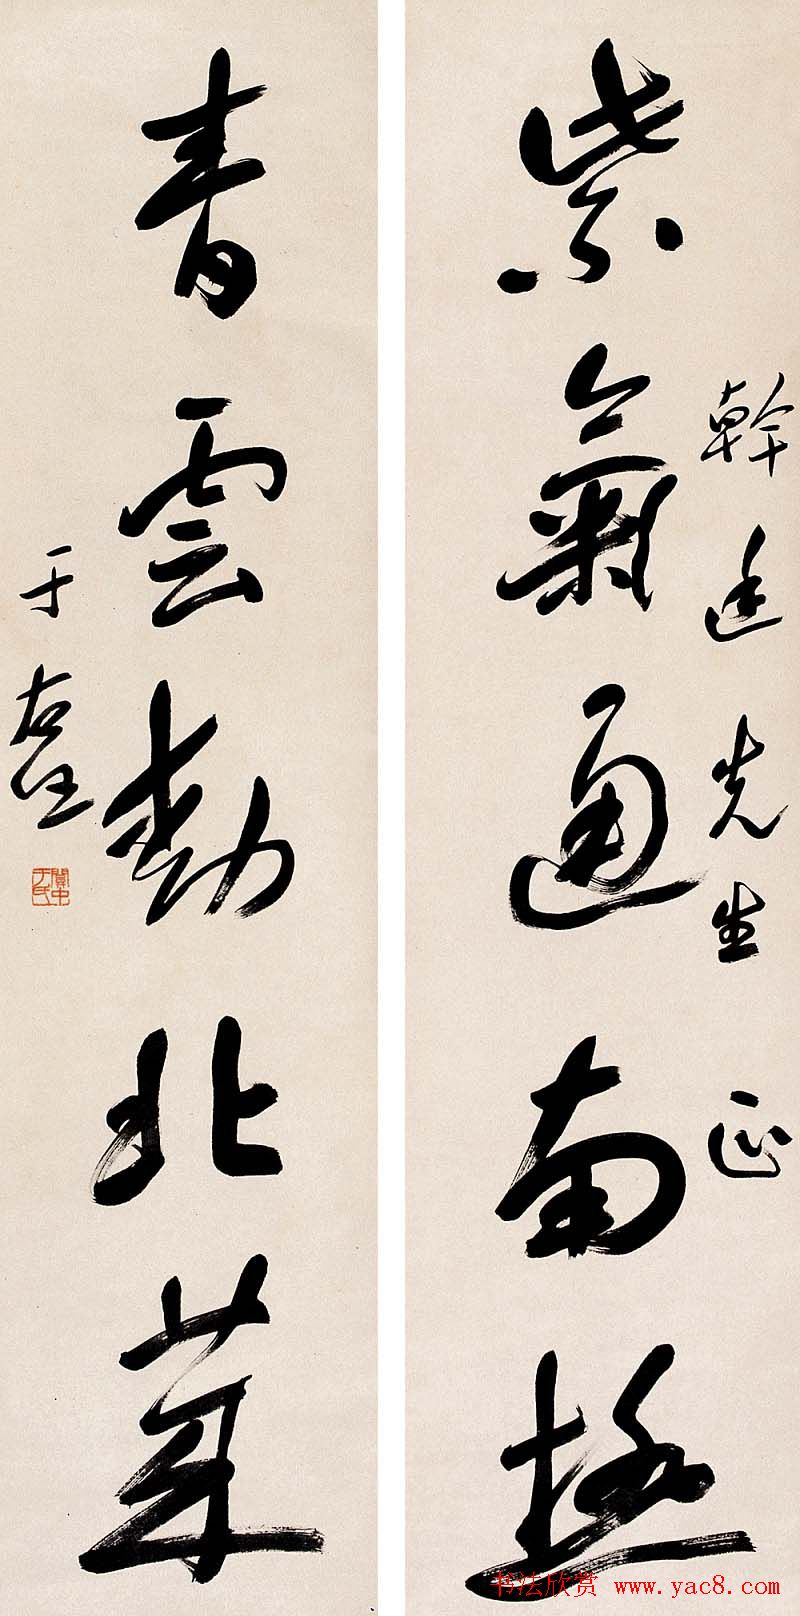 紫氣通南極
幹廷先生 正
青雲動北萊
于右任
關中于氏
书法欣赏 www.yac8.com